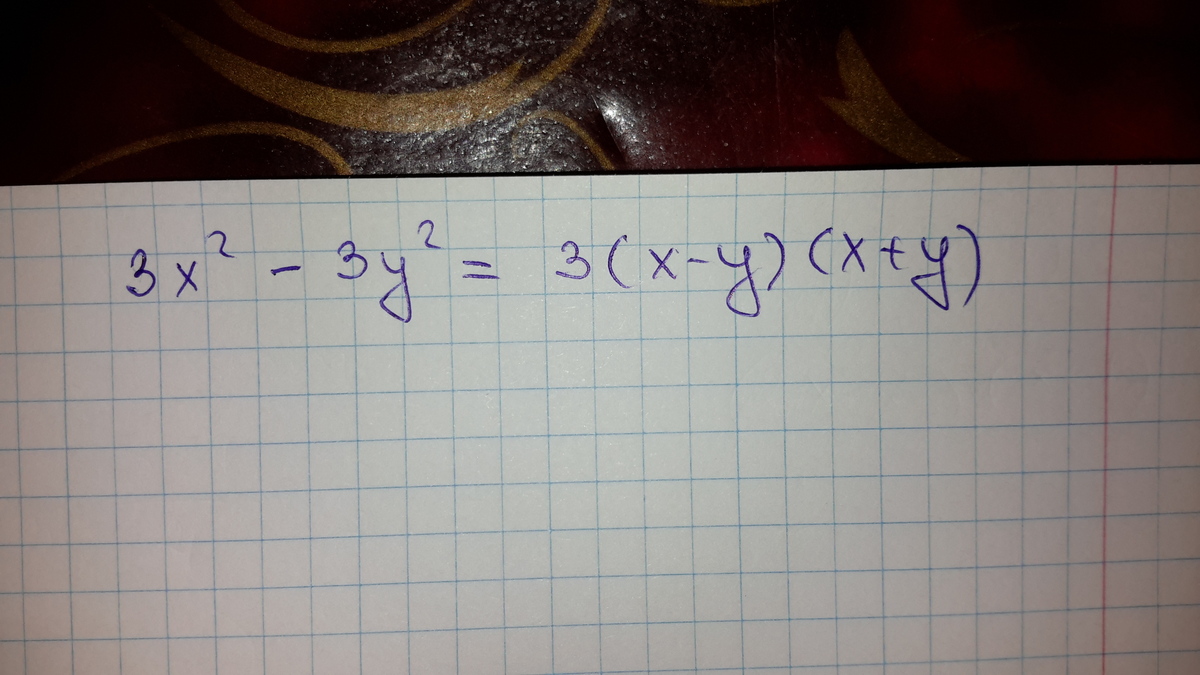 3x² - 3y² = 3(x-y)(x+y)